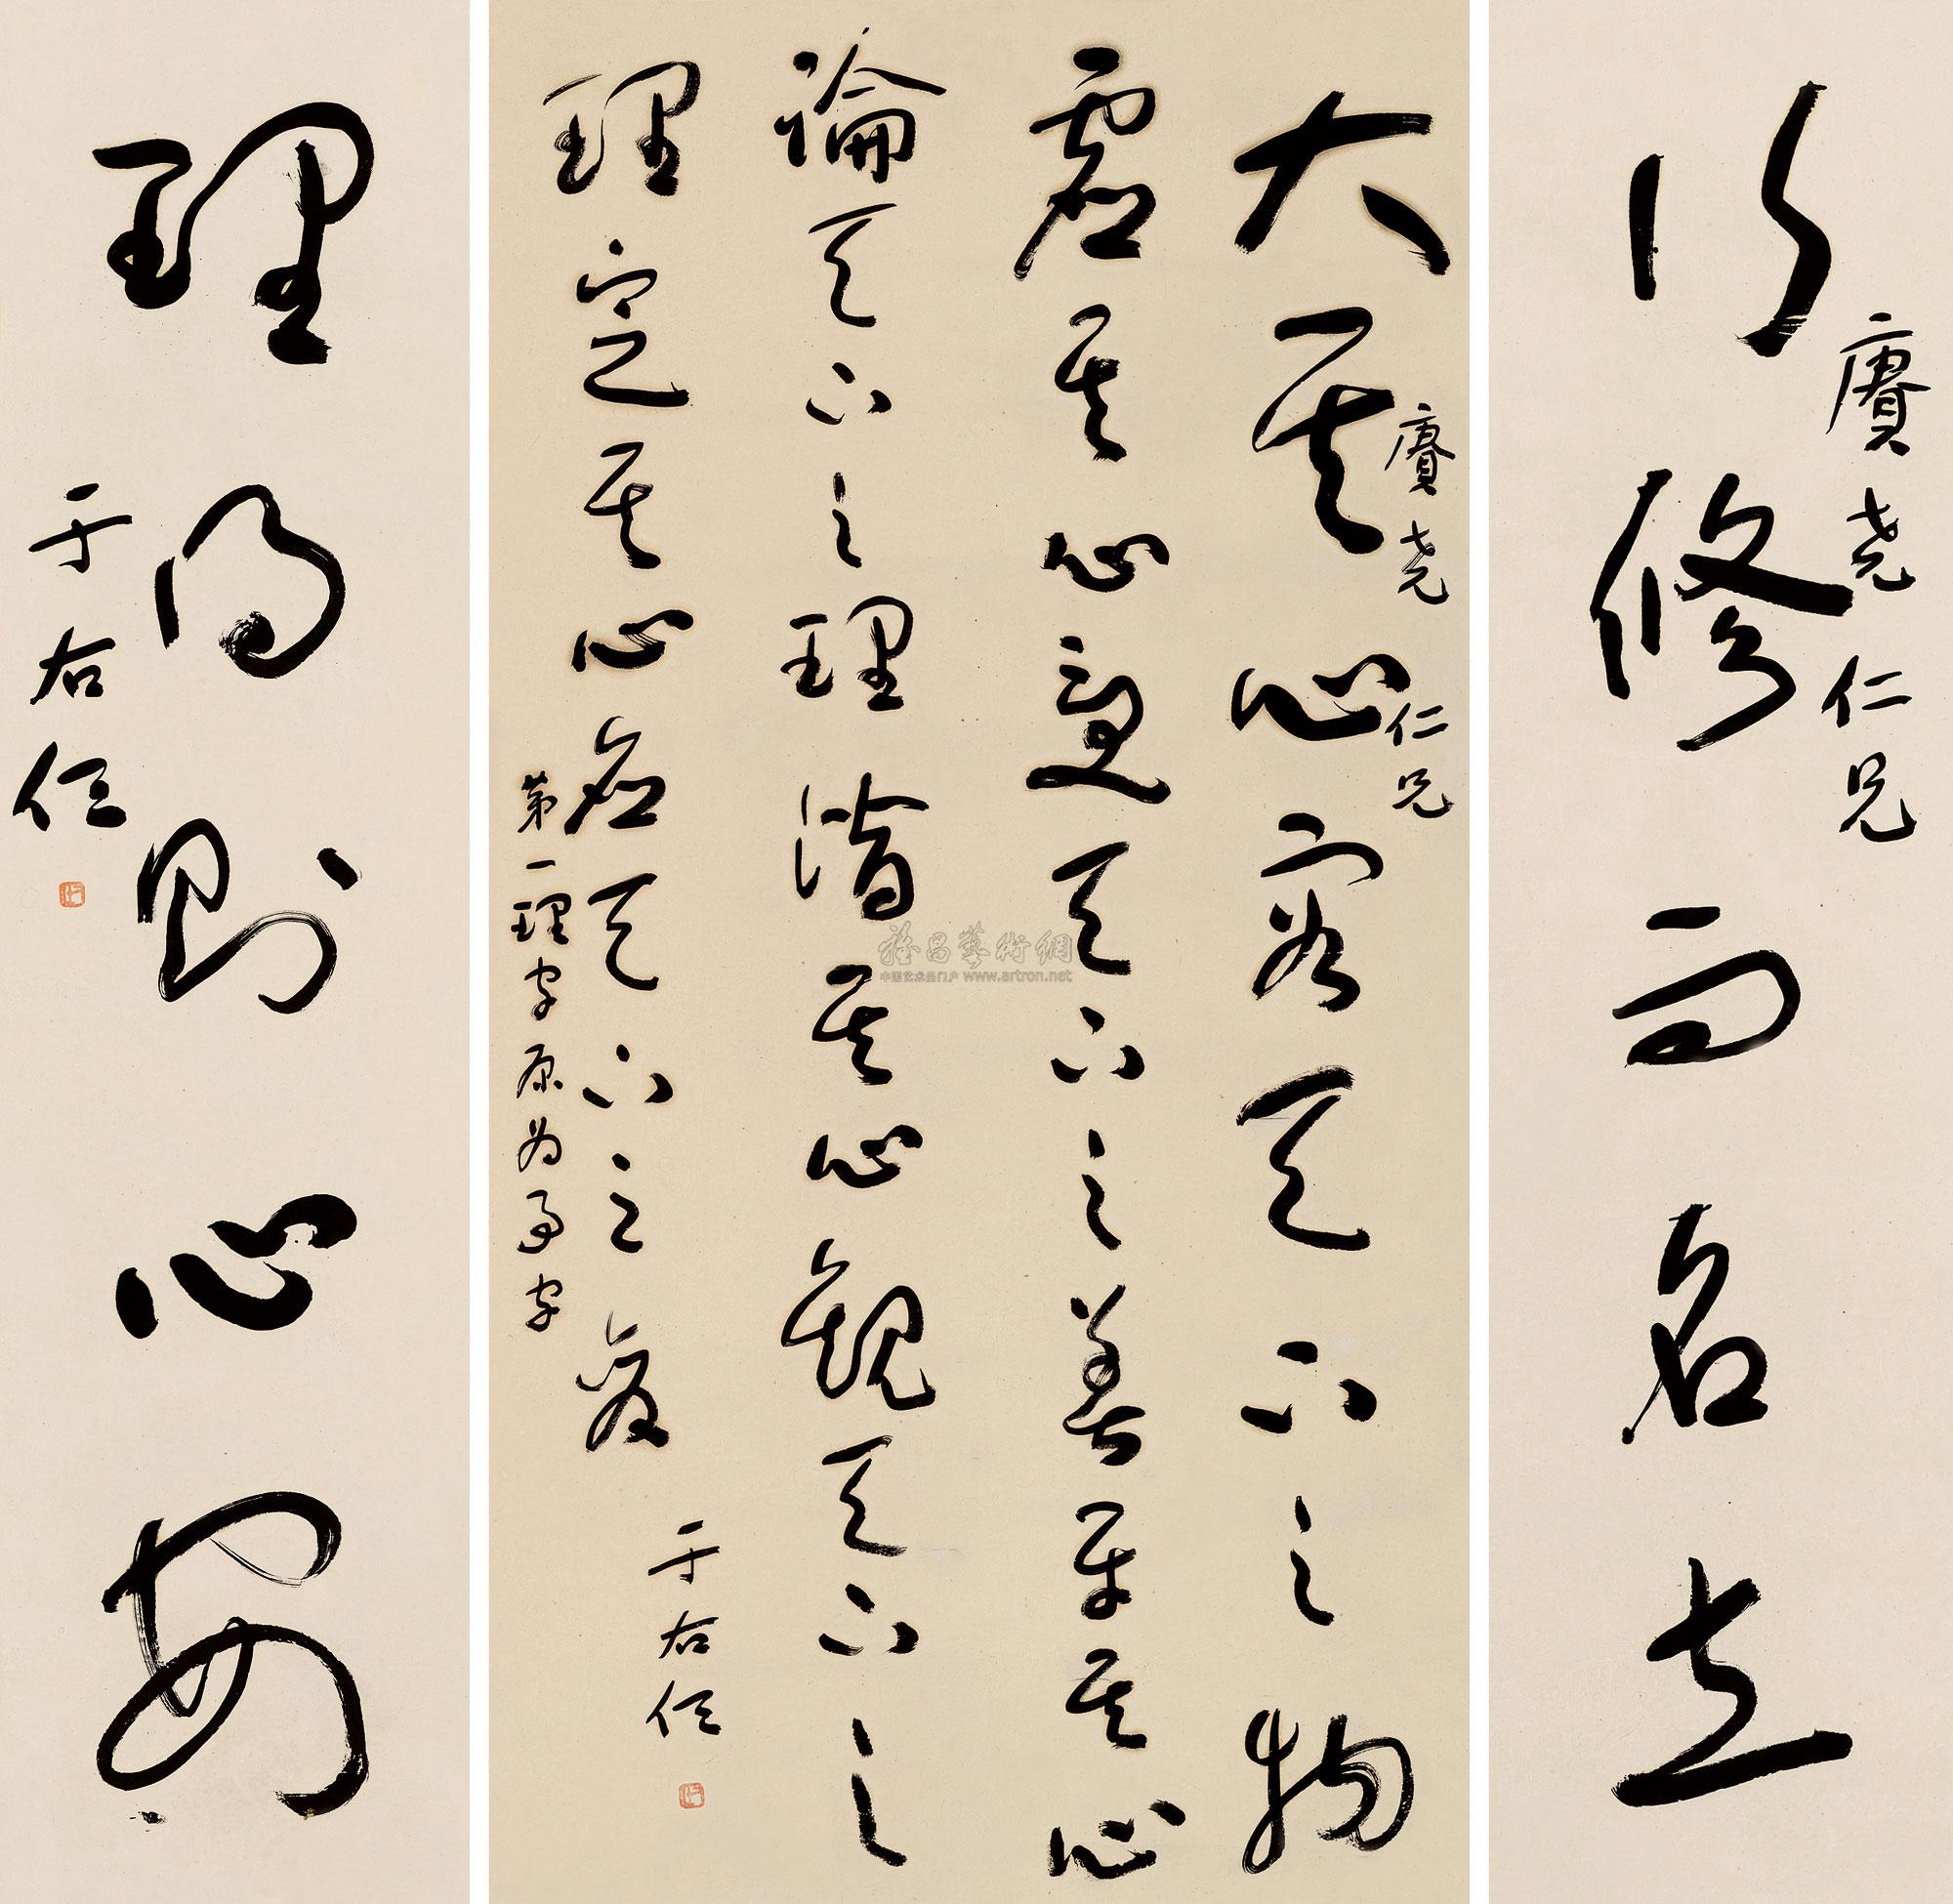 行修而名立
賡堯仁兄
大其心容天下之物
賡堯仁兄
虛其心受天下之善平其心
論天下之理潛其心觀天下之
理定其心應天下之變
第一理字原為事字
于右任
理得則心安
于右任
雅昌藝術網
中国艺术品门户 www.artron.net